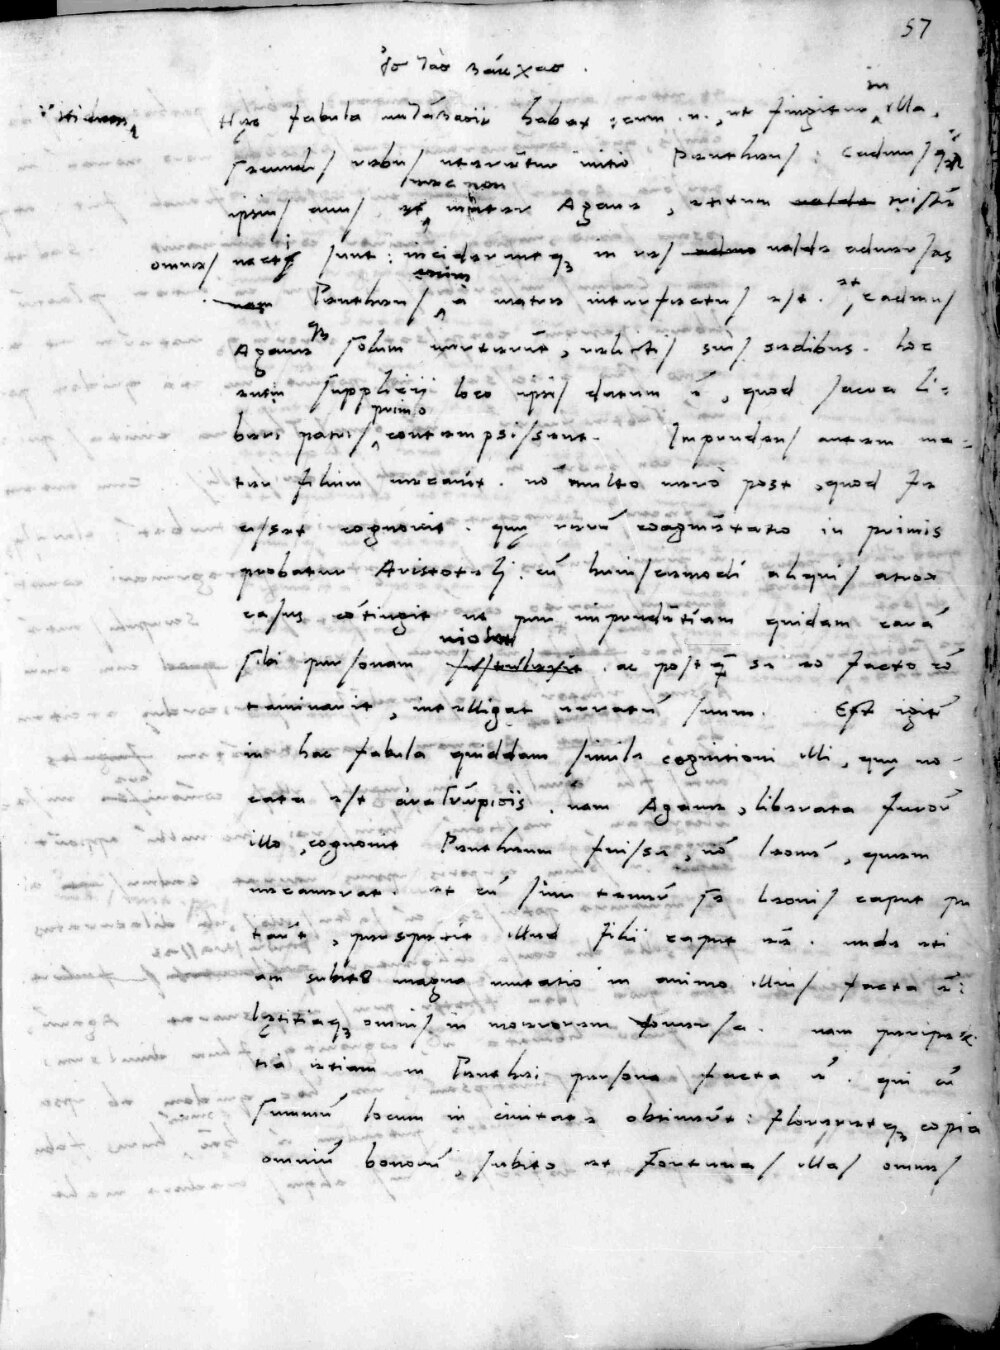 57
εἰς τὰς βάκχας.
Hęc fabula μετάβασιν habet: cum .n., ut fingitur in illa,
secundis rebus uterentur initio Pentheus: Cadmus
ipsius auus, nec non mater Agaue, exitum ualde tristē
omnes nacti sunt: inciderunt q3 in res ualde aduersas
nam Pentheus enim à matre interfectus est. et Cadmus
Agaue q3 solum uerterūt, relictis suis sedibus. hoc
autem supplicij loco ipsis datum ē, quod sacra li-
beri patris primo contempsissent. Imprudens autem ma-
ter filium necauit. nō multo uero post, quod fe
cisset cognouit. quę rerū coagmētatio in primis
probatur Aristoteli. cū huiuscemodi aliquis atrox
casus cōtingit ut per imprudētiam quidam carā
sibi personam uiolet. ac postq̄ se eo facto cō
taminarit, intelligat erratū suum. Est igit̃
in hac fabula quiddam simile cognitioni illi, quę uo-
cata est ἀναγνώρισις. nam Agaue, liberata furorē
illo, cognouit Pentheum fuisse, nō leonē, quem
necauerat. et cū sinu tenerē se leonis caput pu
taret, perspexit illud filii caput eē. unde eti
am subito magna mutatio in animo illius facta ē:
lętitiaq3 omnis in moerorem conuersa. nam peripe-
tia etiam in Penthei persona facta ē. qui cū
summū locum in ciuitate obtineret: floreretq3 copia
omniū bonorū, subito et fortunas illas omnes